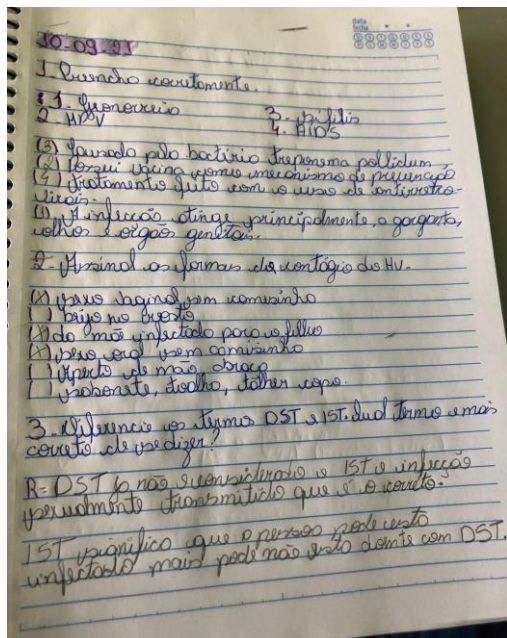 data
fecha
30-09-21
1. Preencha corretamente.
1. Gonorreia
3. Sífilis
2. HPV
4. AIDS
(3) Causado pela bactéria treponema pallidum
(2) Possui vacina como mecanismo de prevenção
(4) tratamento feito com o uso de antirretro-
virais.
(1) A infecção atinge principalmente, a garganta,
olhos e orgãos genitais.
2. Assinal as formas de contágio do HV.
(X) sexo vaginal sem camisinha
( ) beijo no rosto
(X) da mãe infectada para o filho
(X) sexo oral sem camisinha
( ) Aperto de mão, abraço
( ) sabonete, toalha, talher copo.
3. Diferencie os termos DST e IST. Qual termo e mais
correto de se dizer?
R= DST já não e considerado e IST e infecção
sexualmente transmitida que é o correto.
IST significa que a pessoa pode esta
infectado mais pode não esta doente com DST.